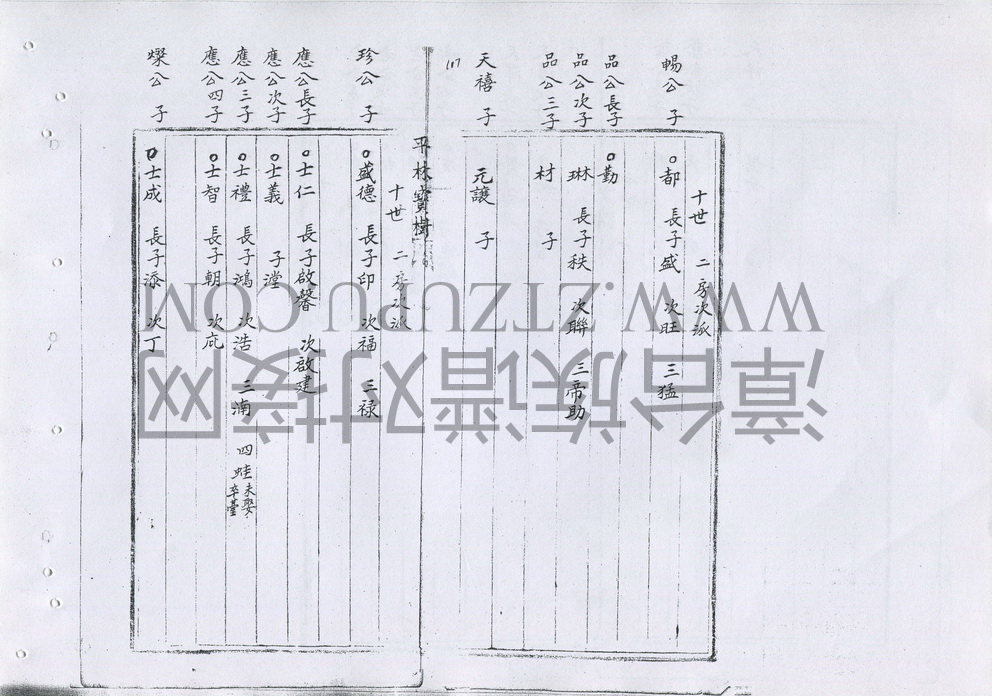 十世 二房次派
暢公 子
都 長子盛 次旺 三猛
品公長子
勤
品公次子
琳 長子秩 次聯 三帝助
品公三子
材 子
天禧 子
元讓 子
117
平林寶樹
十世 二房次派
珍公 子
盛德 長子印 次福 三禄
應公長子
士仁 長子啟馨 次啟建
應公次子
士義 子瀅
應公三子
士禮 長子鴻 次浩 三湳 四蛙 未娶卒臺
應公四子
士智 長子朝 次庇
燦公 子
士成 長子添 次丁
WWW.ZTZUPU.COM
漳台族谱对接网